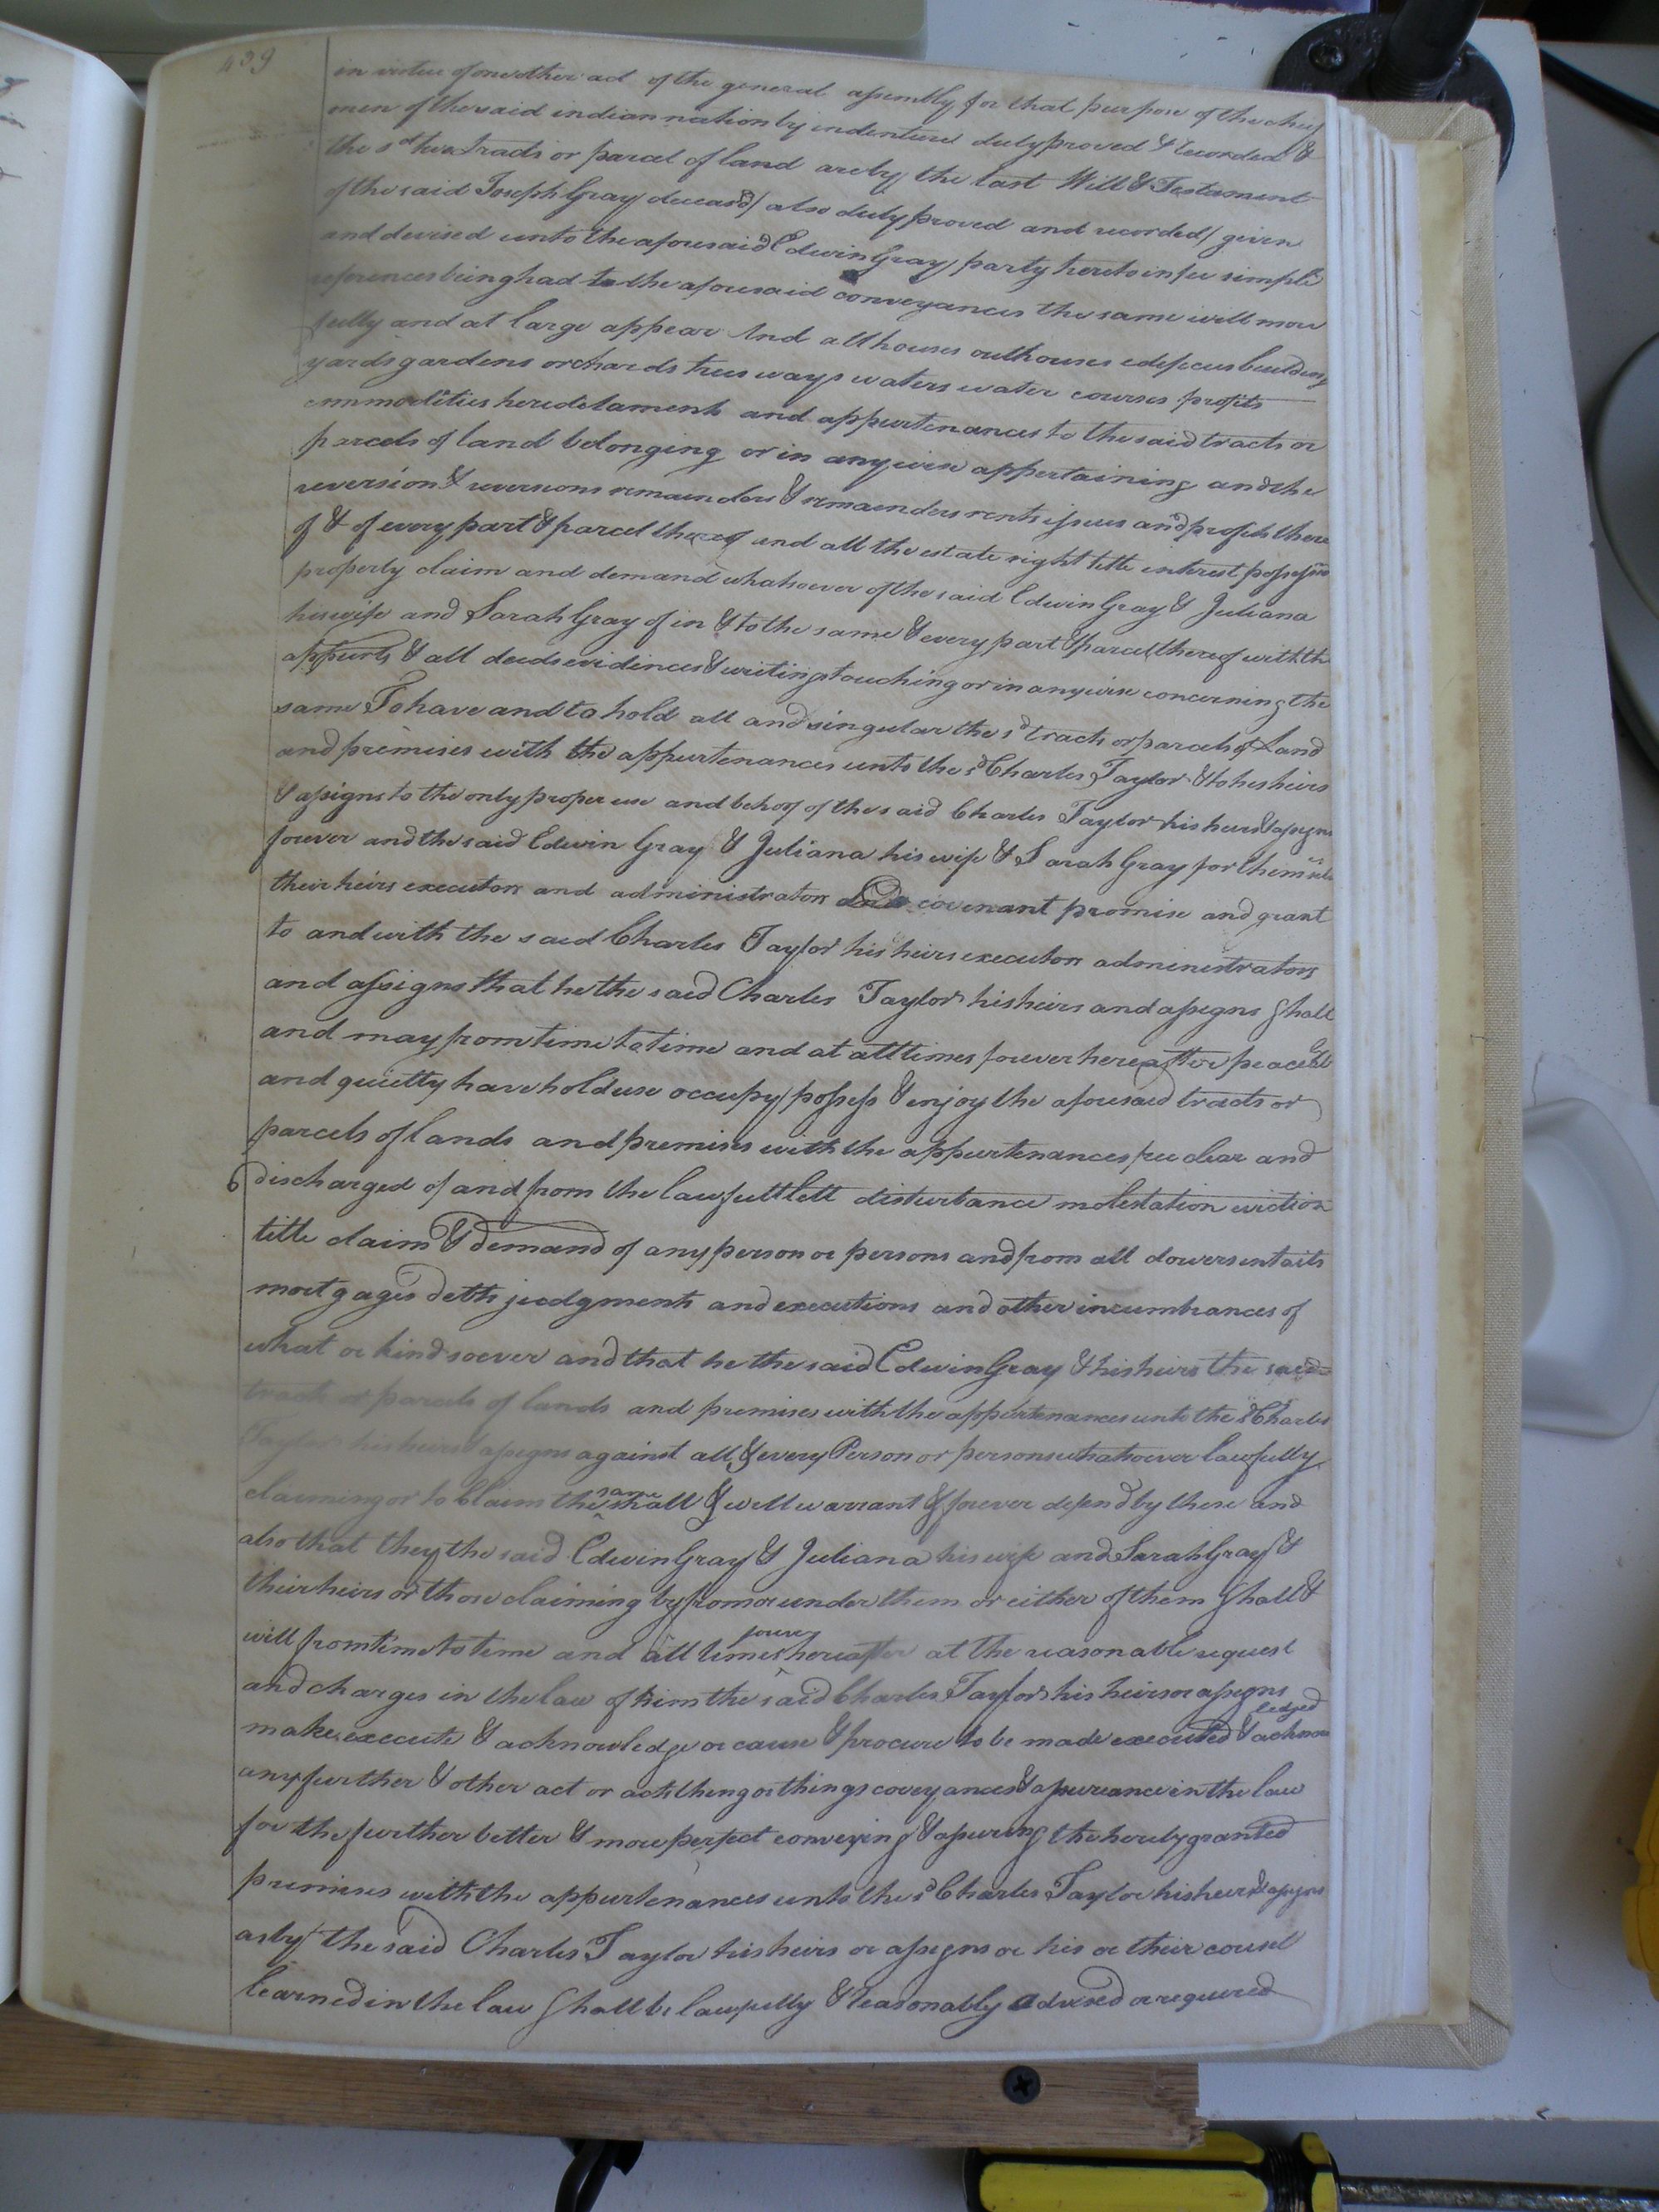 439
in virtue of another act of the general assembly for that purpose of the chief
men of the said indian nation by indenture duly proved & recorded &
the sd two tracts or parcel of land are by the last Will & Testament
of the said Joseph Gray deceasd / also duly proved and recorded / given
and devised unto the aforesaid Edwin Gray party hereto in fee simple
references being had to the aforesaid conveyances the same will more
fully and at large appear And all houses outhouses edifices buildings
yards gardens orchards trees ways waters water courses profits
commodities heredetaments and appurtenances to the said tracts or
parcels of land belonging or in anywise appertaining and the
reversion & reversions remainders & remainders rents issues and profits there
of & of every part & parcel thereof and all the estate right title interest possession
property claim and demand whatsoever of the said Edwin Gray & Juliana
his wife and Sarah Gray of in & to the same & every part & parcel thereof with the
appurts & all deeds evidinces & writings touching or in anywise concerning the
same To have and to hold all and singular the sd tracts or parcels of Land
and premises with the appurtenances unto the sd Charles Taylor & to his heirs
& assigns to the only proper use and behoof of the said Charles Taylor his heirs & assigns
forever and the said Edwin Gray & Juliana his wife & Sarah Gray for themselves
their heirs executors and administrators do covenant promise and grant
to and with the said Charles Taylor his heirs executors administrators
and assigns that he the said Charles Taylor his heirs and assigns shall
and may from time to time and at all times forever hereafter peaceble
and quietly have hold use occupy possess & enjoy the aforesaid tracts or
parcels of lands and premises with the appurtenances free clear and
discharged of and from the lawfull lett disturbance molestation eviction
title claim & demand of any person or persons and from all dowers entails
mortgages debts judgments and executions and other incumbrances of
what or kind soever and that he the said Edwin Gray & his heirs the said
tracts or parcels of lands and premises with the appurtenances unto the sd Charles
Taylor his heirs & assigns against all & every Person or persons whatsoever lawfully
claiming or to Claim the same shall & will warrant & forever defend by these and
also that they the said Edwin Gray & Juliana his wife and Sarah Gray &
their heirs or those claiming by from or under them or either of them shall &
will from time to time and all times forever hereafter at the reasonable request
and charges in the law of him the said Charles Taylor his heirs or assigns
make execute & acknowledge or cause & procure to be made executed & acknowledged
any further & other act or acts thing or things coveyances & assurance in the law
for the further better & more perfect conveying & assuring the hereby granted
premises with the appurtenances unto the sd Charles Taylor his heirs & assigns
as by the said Charles Taylor his heirs or assigns or his or their counsel
learned in the law shall be lawfully & reasonably advised or required